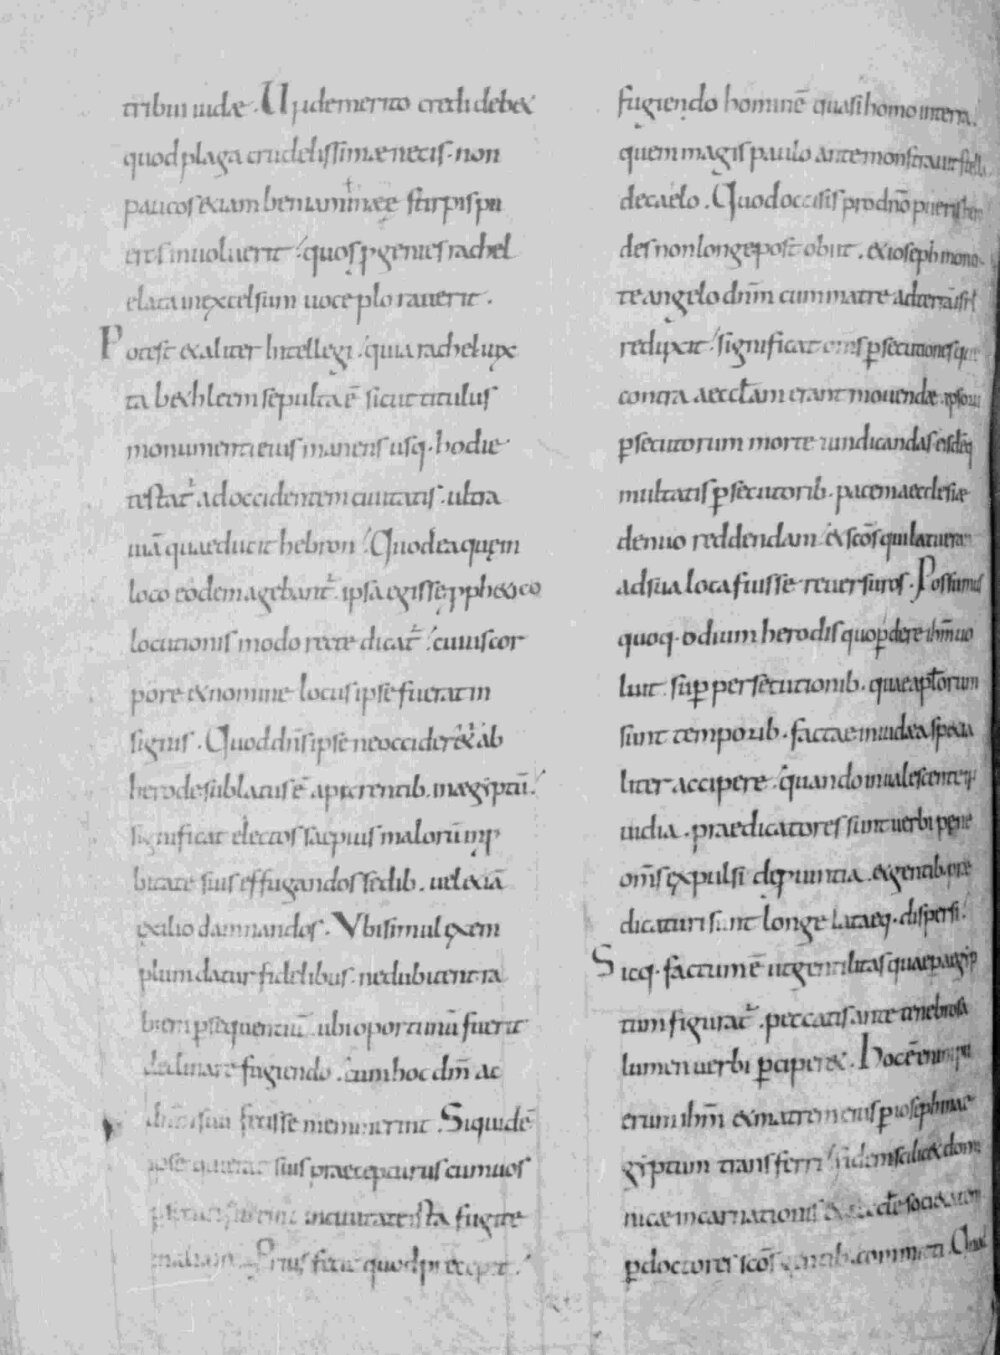 tribui iudæ . Unde merito credi debet
quod plaga crudelissimæ necis . non
paucos & iam beniaminææ stirpis pu
eros inuoluerit quos pgenies rachel
elata in excelsum uoce plorauerit .
Potest & aliter intellegi quia rachel iux
ta bethleem sepulta ē sicut titulus
monumenti eius manens usq. hodie
testat ad occidentem ciuitatis . ultra
uiā quae ducit hebron Quod ea quę in
loco eodem agebant ipsa egisse pph&ico
locutionis modo recte dicat cuius cor
pore & nomine locus ipse fuerat in
signis . Quod dn̄s ipse ne occideret ab
herode sublatus ē a parentib. in ægiptū
significat electos saepius malorū inp
bitate suis effugandos sedib . uel etiā
exilio damnandos . Ubi simul exem
plum datur fidelibus . ne dubitent ra
biem psequentiū . ubi oportunū fuerit
declinare fugiendo . cum hoc dm̄ ac
dnm suū fecisse meminerint . Siquidē
ipse qui erat suis praecepturus cum uos
persecuti fuerint in ciuitate ista fugite
in aliam . Prius fecit quod precepit .
fugiendo hominē quasi homo in terra .
quem magis paulo ante monstrauit stella
de caelo . Quod occisis pro dn̄o pueris hero
des non longe post obiit . & ioseph mone
te angelo dn̄m cum matre ad terrā isrl
reduxit significat omīs psecutiones que
contra aecclam erant mouendæ . ipsorū
psecutorum morte uindicandas eisdēq
multatis psecutorib . pacem aecclesiæ
denuo reddendam & scōs qui latuerant
ad sua loca fuisse reuersuros . Possumus
quoq. odium herodis quo pdere ihm uo
luit sup persecutionib . quae aplorum
sunt temporib . factae in iudæa specia
liter accipere quando inualescente in
uidia . praedicatores sunt uerbi pene
omīs expulsi de puintia . & gentib. præ
dicaturi sunt longe lateq. dispersi
Sicq. factum ē ut gentilitas quae p aegip
tum figurat . peccatis ante tenebrosa
lumen uerbi pciper& . Hoc ē enim pu
erum ihm & matrem eius p ioseph in ae
giptum transferri fidem scilic& domi
nicæ incarnationis & ecclae societatem
p doctores scōs gentib. committi . Quod